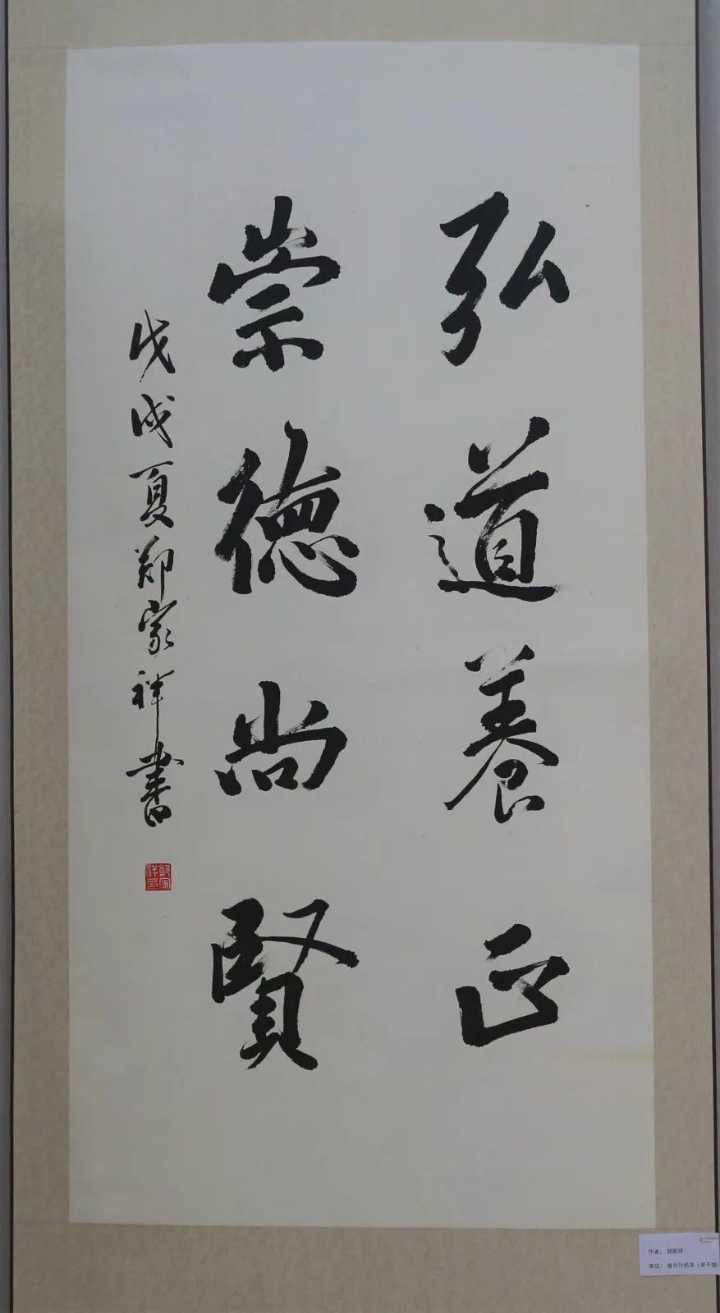 弘道養正
崇德尚賢
戊戌夏郑家祥書
作者：郑家祥